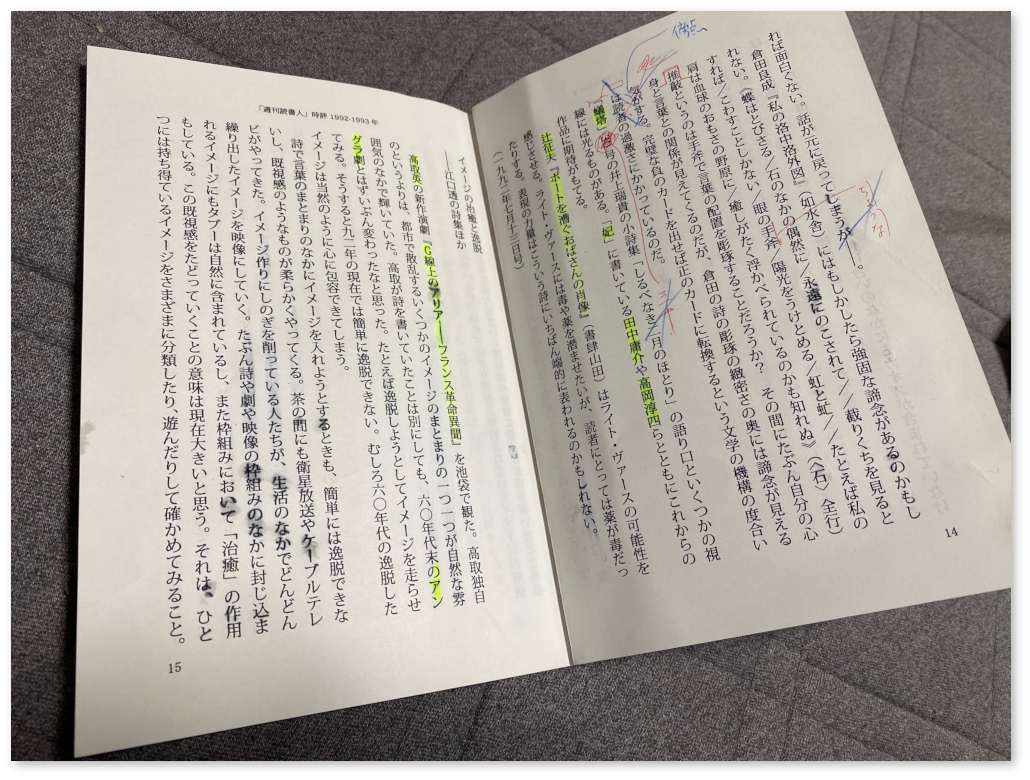 れば面白くない。話が元に戻ってしまうが――。
倉田良成『私の洛中洛外図』(如水舎)にはもしかしたら強固な諦念があるのかもし
れない。〈蝶はとびさる/石のなかの偶然に/永遠にのこされて//截りくちを見ると
すれば/こわすことしかない/眼の手斧 陽光をうけとめる/虹と虹//たとえば私の
肩は血球のおもさの野原に/癒しがたく浮かべられているのかも知れぬ〉(〈石〉全行)
推敲というのは手斧で言葉の配置を彫琢することだろうか? その間にたぶん自分の心
身と言葉との関係が見えてくるのだが、倉田の詩の彫琢の緻密さの奥には諦念が見える
気がする。完璧な負のカードを出せば正のカードに転換するという文学の機構の度合い
は読者の過激さにかかっているのだ。
「蟻塔」号の井上瑞貴の小詩集〈しるべなき三月のほとり〉の語り口といくつかの視
線には光るものがある。「妃」に書いている田中庸介や高岡淳四らとともにこれからの
作品に期待がもてる。
辻征夫『ボートを漕ぐおばさんの肖像』(書肆山田)はライト・ヴァースの可能性を
感じさせる。ライト・ヴァースには毒や薬を潜ませたいが、読者にとっては薬が毒だっ
たりする。表現の力量はこういう詩にいちばん端的に表われるのかもしれない。
(一九九二年七月十三日号)
傍点
三
14
「週刊読書人」時評 1992-1993 年
イメージの治癒と逸脱
――江口透の詩集ほか
高取英の新作演劇『G線上のアリア――フランス革命異聞』を池袋で観た。高取独自
のというよりは、都市で散乱するいくつかのイメージのまとまりの一つ一つが自然な雰
囲気のなかで輝いていた。高取が詩を書いていたことは別にしても、六〇年代末のアン
グラ劇とはずいぶん変わったなと思った。たとえば逸脱しようとしてイメージを走らせ
てみる。そうすると九二年の現在では簡単に逸脱できない。むしろ六〇年代の逸脱した
イメージは当然のように心に包容できてしまう。
詩で言葉のまとまりのなかにイメージを入れようとするときも、簡単には逸脱できな
いし、既視感のようなものが柔らかくやってくる。茶の間にも衛星放送やケーブルテレ
ビがやってきた。イメージ作りにしのぎを削っている人たちが、生活のなかでどんどん
繰り出したイメージを映像にしていく。たぶん詩や劇や映像の枠組みのなかに封じ込ま
れるイメージにもタブーは自然に含まれているし、また枠組みにおいて「治癒」の作用
もしている。この既視感をたどっていくことの意味は現在大きいと思う。それは、ひと
つには持ち得ているイメージをさまざまに分類したり、遊んだりして確かめてみること。
15